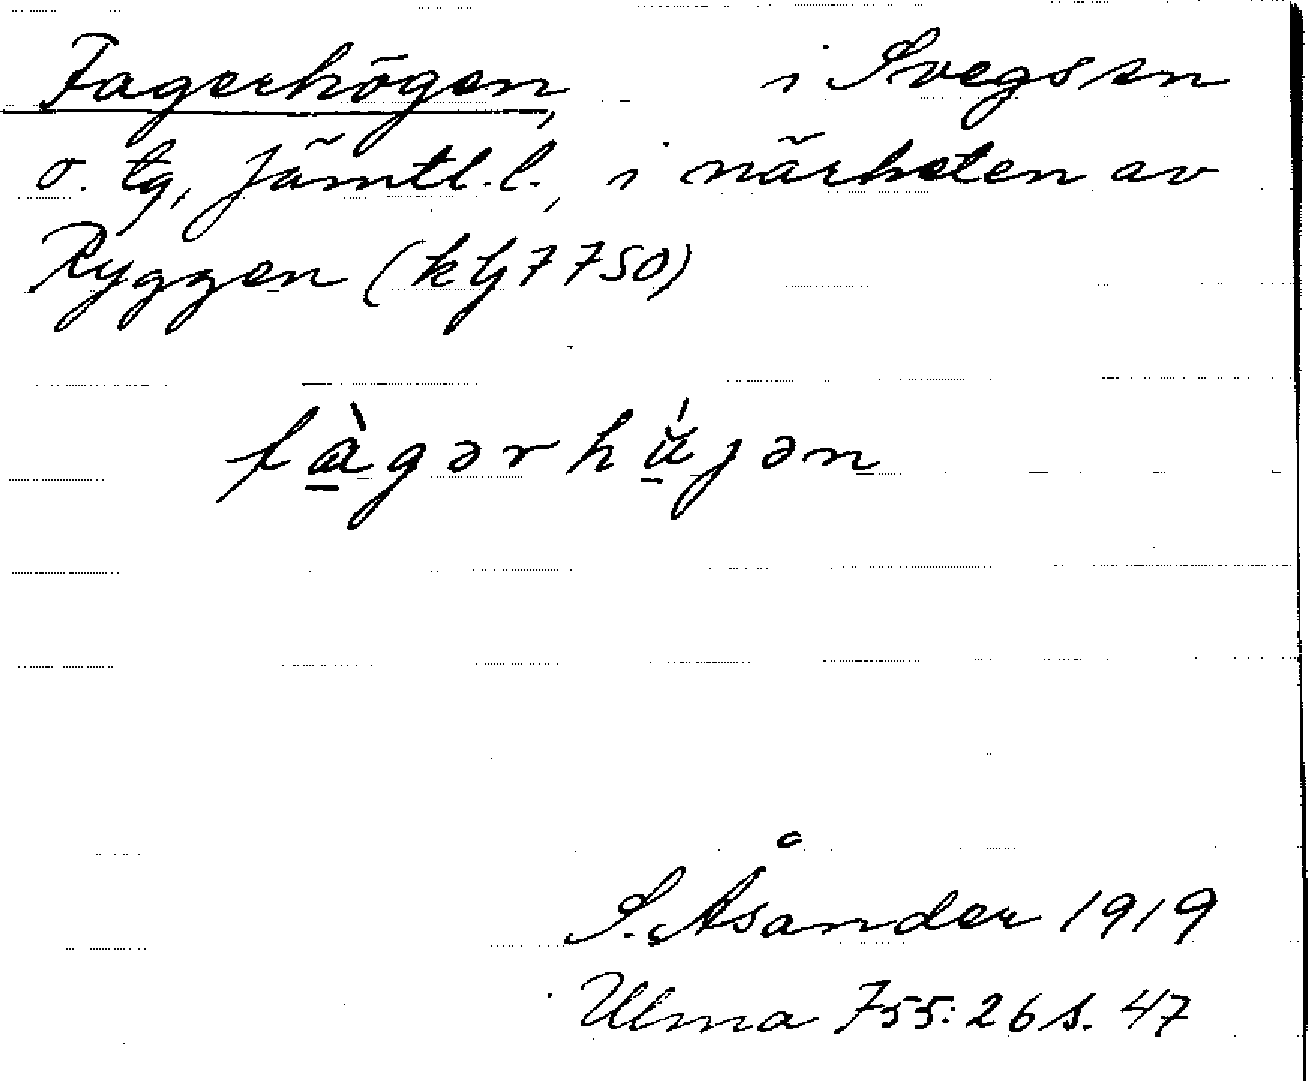 Fagerhögen, i Svegs sn
o. tg, Jämtl. l., i närheten av
Ryggen (kbf 7750)
fàgərhä́jən
S. Åsander 1919
Ulma 755:26 s. 47